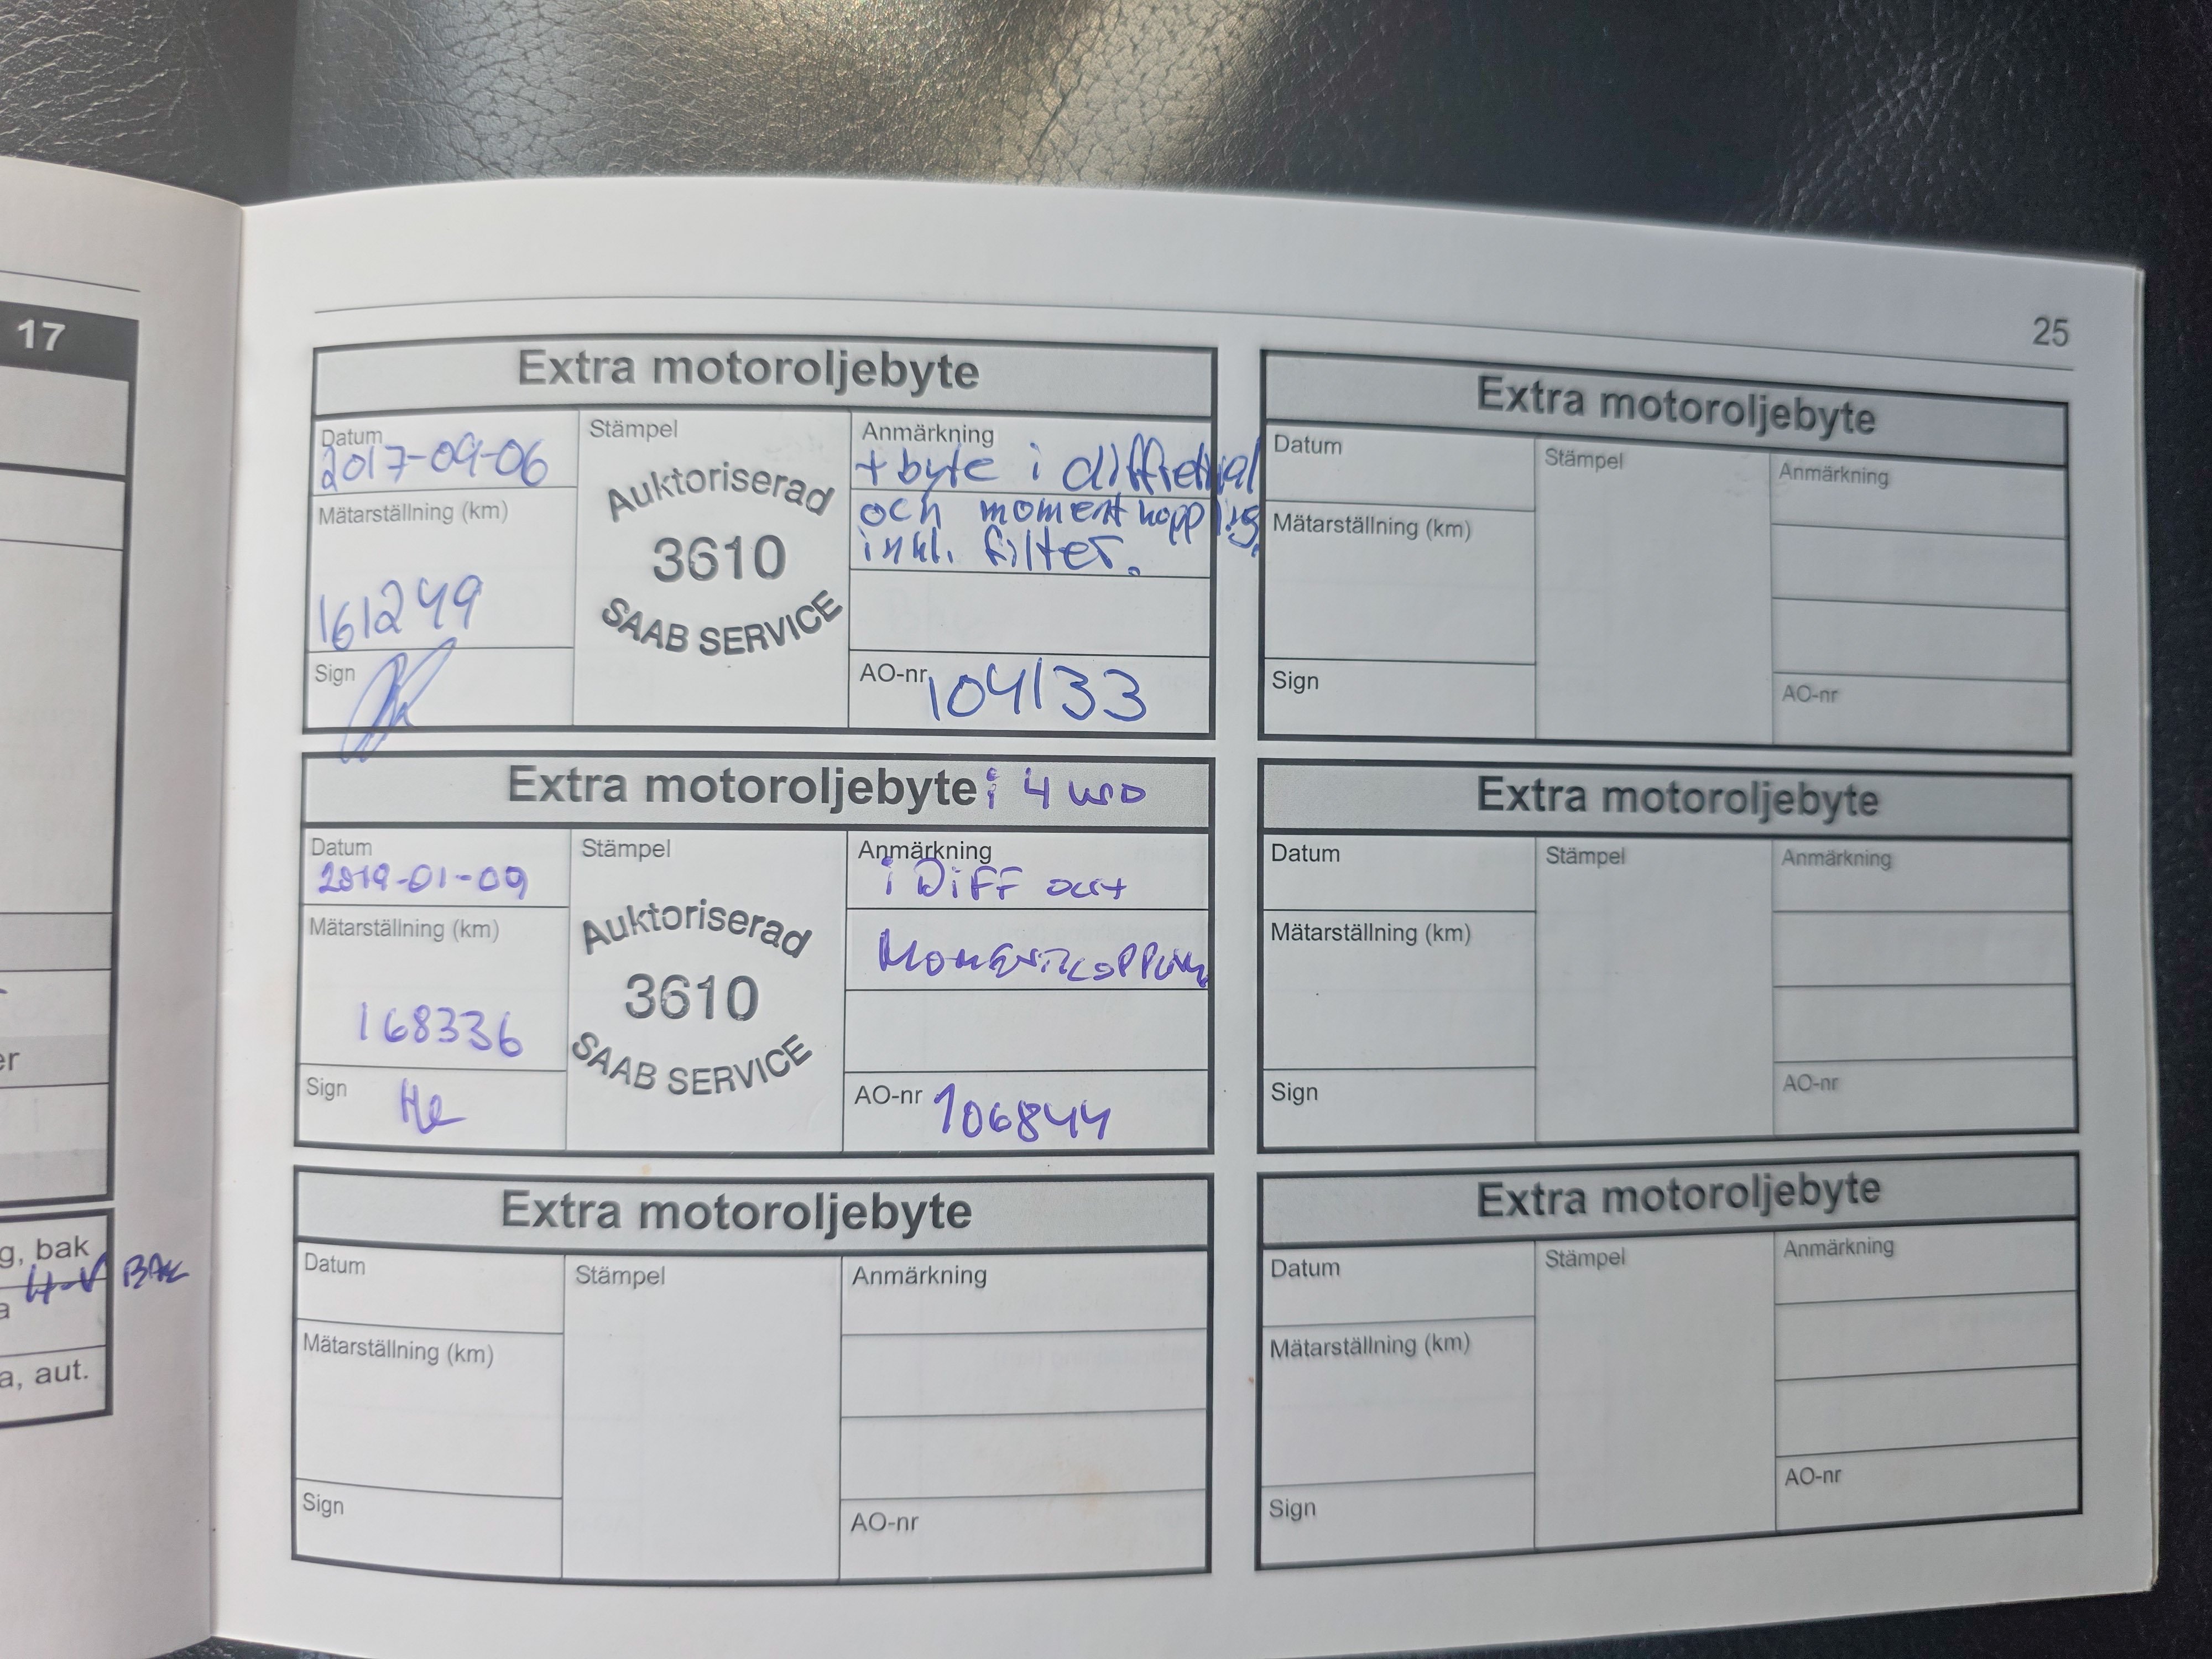 17
g, bak
H-V BAK
a
a, aut.
er
25
Extra motoroljebyte
Datum
2017-09-06
Mätarställning (km)
161249
Sign
Stämpel
Auktoriserad
3610
SAAB SERVICE
Anmärkning
+ byte i diffrential
och momentkoppling,
inkl. filter.
AO-nr 104133
Extra motoroljebyte i 4 WD
Datum
2019-01-09
Mätarställning (km)
168336
Sign
Stämpel
Auktoriserad
3610
SAAB SERVICE
Anmärkning
i DiFF och
Momentkoppling
AO-nr 106844
Extra motoroljebyte
Datum
Mätarställning (km)
Sign
Stämpel
Anmärkning
AO-nr
Extra motoroljebyte
Datum
Mätarställning (km)
Sign
Stämpel
Anmärkning
AO-nr
Extra motoroljebyte
Datum
Mätarställning (km)
Sign
Stämpel
Anmärkning
AO-nr
Extra motoroljebyte
Datum
Mätarställning (km)
Sign
Stämpel
Anmärkning
AO-nr